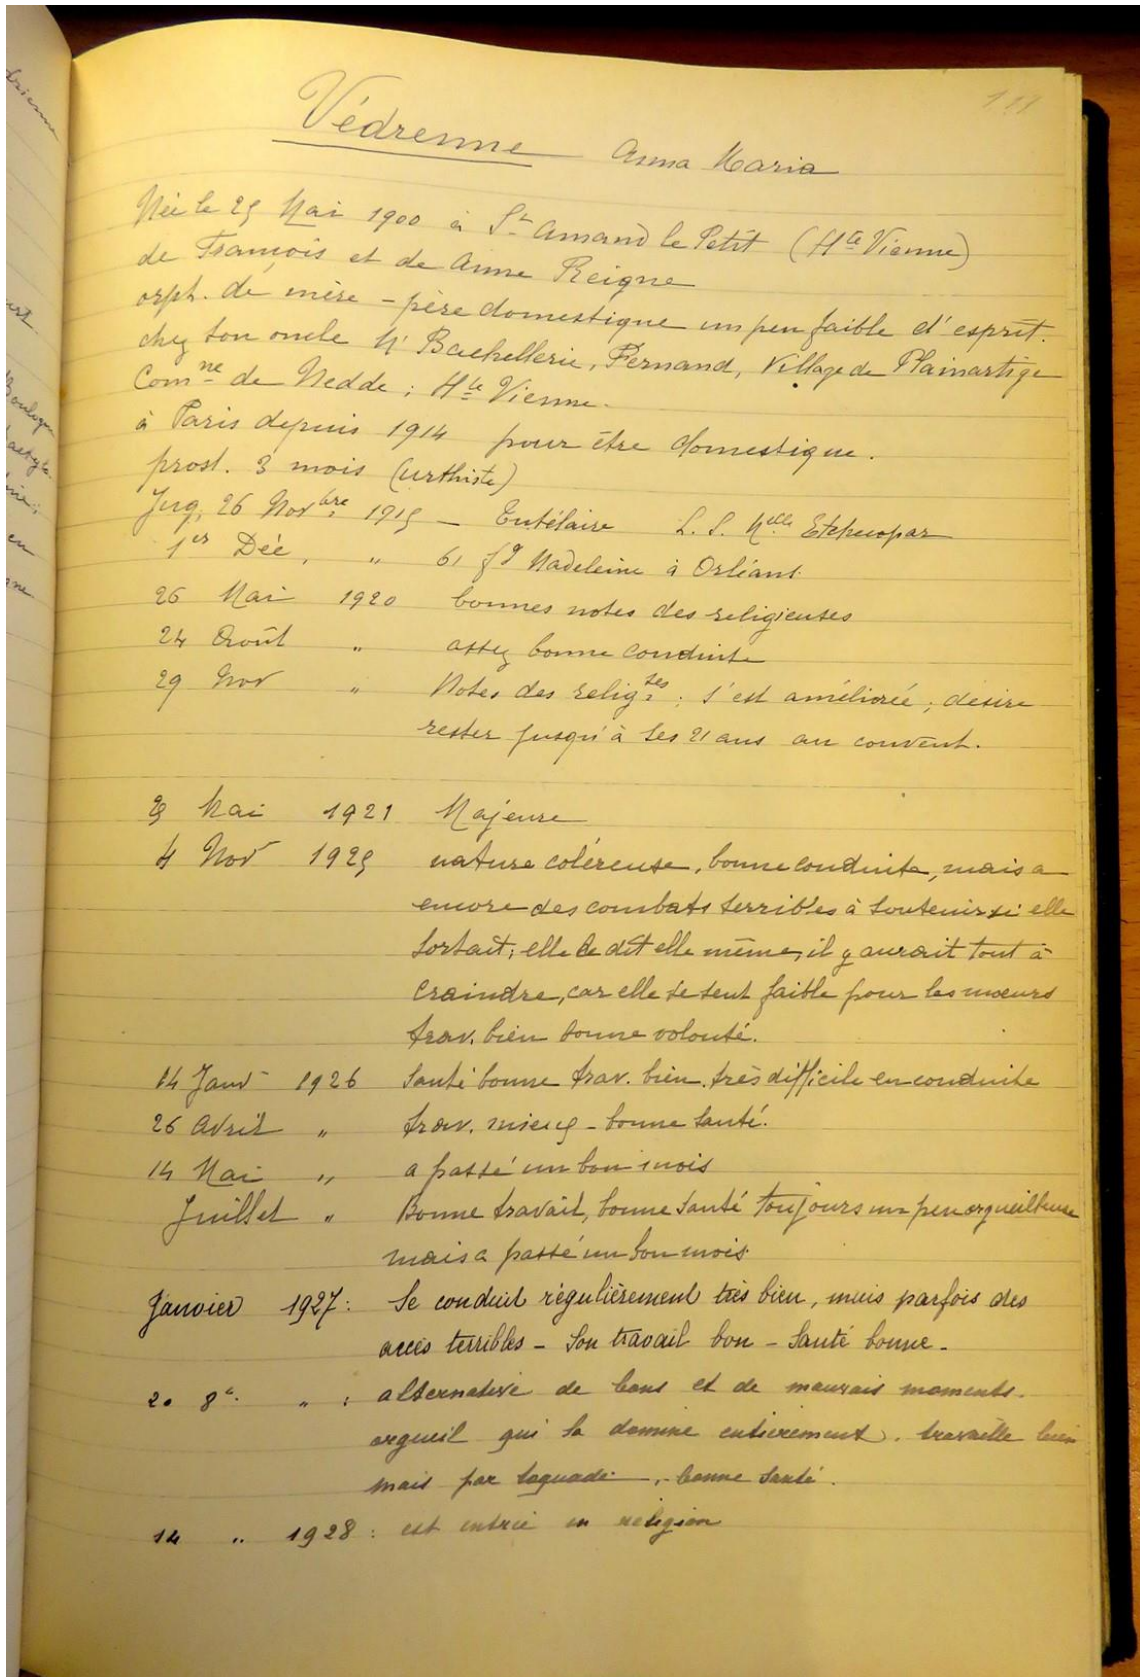 111
Védrenne Anna Maria
Née le 25 Mai 1900 à St Amand le Petit (Hte Vienne)
de François et de Anne Reigne
orph. de mère - père domestique un peu faible d'esprit.
chez son oncle Mr Bachellerie, Fernand, Village de Plainartige
Comne de Nedde ; Hte Vienne.
à Paris depuis 1914 pour être domestique.
prost. 3 mois (urthiste)
Jug. 26 Novbre 1915 - Tutélaire L. S. Melle Etchecopar
1er Déc. " 61 fg Madeleine à Orléans.
26 Mai 1920 bonnes notes des religieuses
24 Août " assez bonne conduite
29 Nov " Notes des religses : s'est améliorée ; désire
rester jusqu'à ses 21 ans au couvent.
25 Mai 1921 Majeure
4 Nov 1925 nature coléreuse, bonne conduite, mais a
encore des combats terribles à soutenir si elle
sortait ; elle le dit elle même, il y aurait tout à
craindre, car elle se sent faible pour les moeurs
trav. bien bonne volonté.
14 Janv 1926 Santé bonne trav. bien. très difficile en conduite
26 Avril " trav. mieux - bonne santé.
14 Mai " a passé un bon mois
Juillet " Bonne travail, bonne santé toujours un peu orgueilleuse
mais a passé un bon mois.
Janvier 1927 : Se conduit régulièrement très bien, mais parfois des
accès terribles - Son travail bon - Santé bonne -
20 8e " : alternative de bons et de mauvais moments.
orgueil qui la domine entièrement. travaille bien
mais par toquade -, bonne santé.
14 " 1928 : est entrée en religion